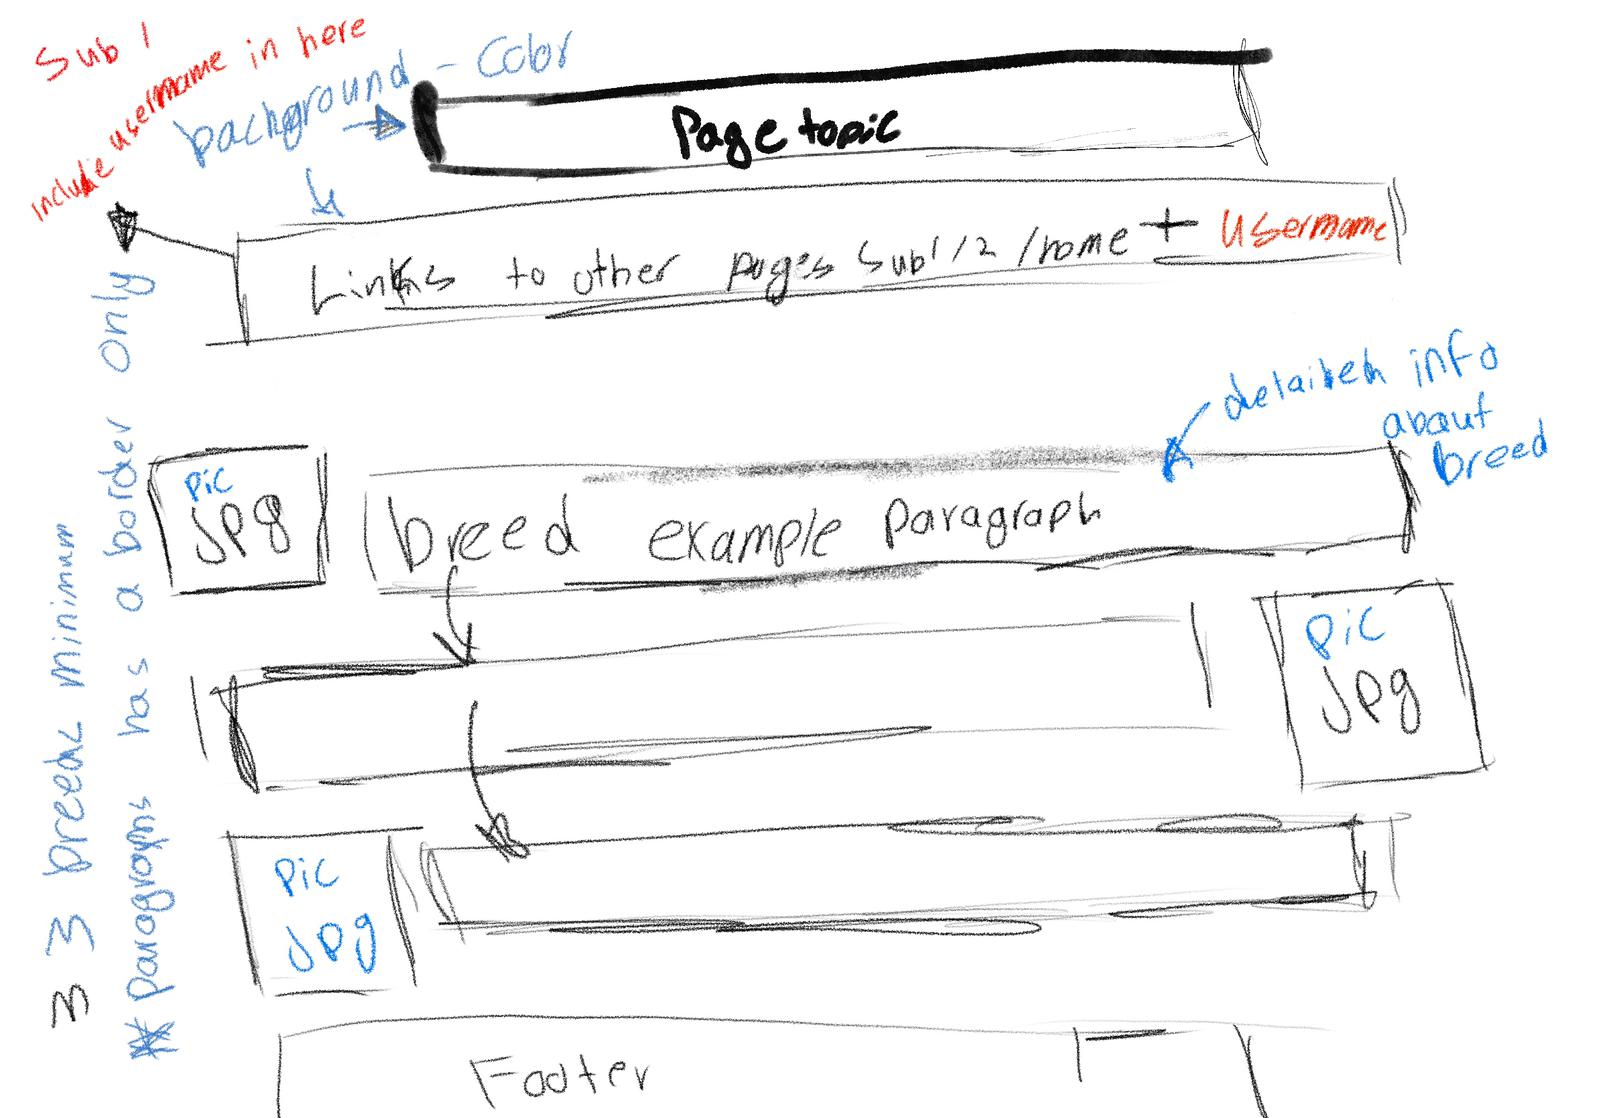 Sub 1
include username in here
background - Color
Page topic
Links to other pages Sub 1/2 /home + Username
detailed info
about
breed
pic
jpg
breed example paragraph
pic
jpg
pic
jpg
Footer
3 breeds minimum
* paragraphs has a border only